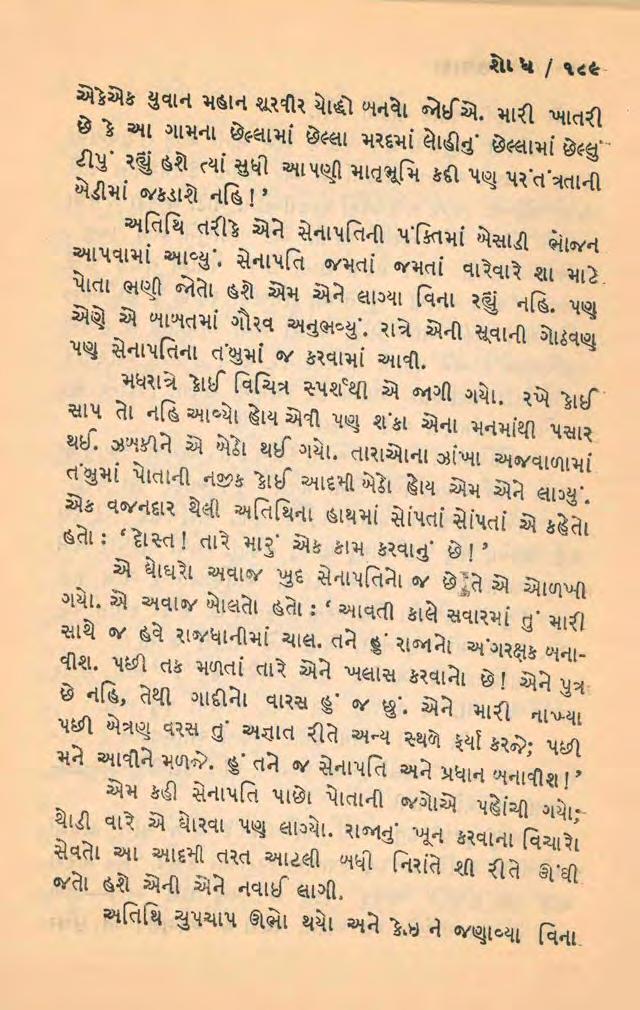 શોધ / ૧૮૯
એકેએક યુવાન મહાન શૂરવીર યોદ્ધો બનવો જોઈએ. મારી ખાતરી
છે કે આ ગામના છેલ્લામાં છેલ્લા મરદમાં લોહીનું છેલ્લામાં છેલ્લું
ટીપું રહ્યું હશે ત્યાં સુધી આપણી માતૃભૂમિ કદી પણ પરતંત્રતાની
બેડીમાં જકડાશે નહિ!’
અતિથિ તરીકે એને સેનાપતિની પંક્તિમાં બેસાડી ભોજન
આપવામાં આવ્યું. સેનાપતિ જમતાં જમતાં વારેવારે શા માટે
પોતા ભણી જોતો હશે એમ એને લાગ્યા વિના રહ્યું નહિ. પણ
એણે એ બાબતમાં ગૌરવ અનુભવ્યું. રાત્રે એની સૂવાની ગોઠવણ
પણ સેનાપતિના તંબુમાં જ કરવામાં આવી.
મધરાત્રે કોઈ વિચિત્ર સ્પર્શથી એ જાગી ગયો. રખે કોઈ
સાપ તો નહિ આવ્યો હોય એવી પણ શંકા એના મનમાંથી પસાર
થઈ. ઝબકીને એ બેઠો થઈ ગયો. તારાઓના ઝાંખા અજવાળામાં
તંબુમાં પોતાની નજીક કોઈ આદમી બેઠો હોય એમ એને લાગ્યું.
એક વજનદાર થેલી અતિથિના હાથમાં સોંપતાં સોંપતાં એ કહેતો
હતો : ‘દોસ્ત! તારે મારું એક કામ કરવાનું છે!’
એ ઘોઘરો અવાજ ખુદ સેનાપતિનો જ છે તે એ ઓળખી
ગયો. એ અવાજ બોલતો હતો : ‘આવતી કાલે સવારમાં તું મારી
સાથે જ હવે રાજધાનીમાં ચાલ. તને હું રાજાનો અંગરક્ષક બના-
વીશ. પછી તક મળતાં તારે એને ખલાસ કરવાનો છે! એને પુત્ર
છે નહિ, તેથી ગાદીનો વારસ હું જ છું. એને મારી નાખ્યા
પછી બેત્રણ વરસ તું અજ્ઞાત રીતે અન્ય સ્થળે ફર્યા કરજે; પછી
મને આવીને મળજે. હું તને જ સેનાપતિ અને પ્રધાન બનાવીશ!’
એમ કહી સેનાપતિ પાછો પોતાની જગોએ પહોંચી ગયો;
થોડી વારે એ ઘોરવા પણ લાગ્યો. રાજાનું ખૂન કરવાના વિચારો
સેવતો આ આદમી તરત આટલી બધી નિરાંતે શી રીતે ઊંઘી
જતો હશે એની એને નવાઈ લાગી.
અતિથિ ચુપચાપ ઊભો થયો અને કોઈને જણાવ્યા વિના